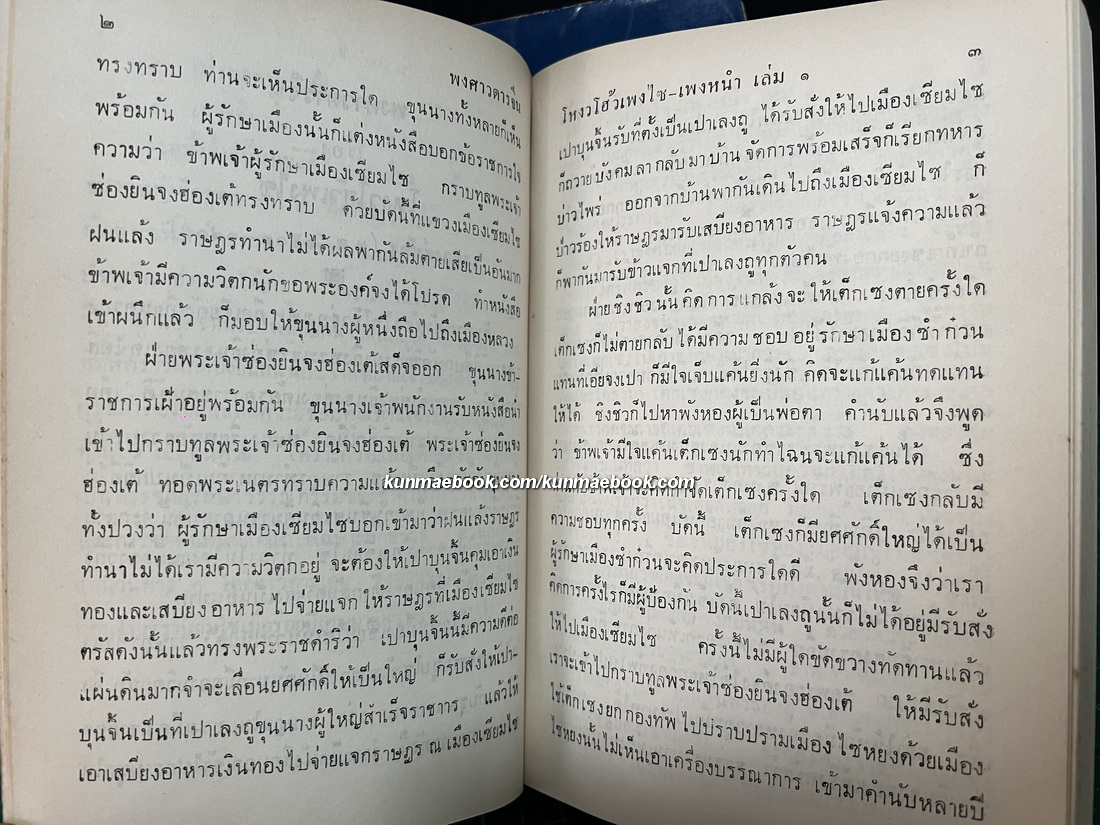 ๒
พงศาวดารจีน
ทรงทราบ ท่านจะเห็นประการใด ขุนนางทั้งหลายก็เห็น
พร้อมกัน ผู้รักษาเมืองนั้นก็แต่งหนังสือบอกข้อราชการใจ
ความว่า ข้าพเจ้าผู้รักษาเมืองเซียมไซ กราบทูลพระเจ้า
ซ่องยินจงฮ่องเต้ทรงทราบ ด้วยบัดนี้ที่แขวงเมืองเซียมไซ
ฝนแล้ง ราษฎรทำนาไม่ได้ผลพากันล้มตายเสียเป็นอันมาก
ข้าพเจ้ามีความวิตกนักขอพระองค์จงได้โปรด ทำหนังสือ
เข้าผนึกแล้ว ก็มอบให้ขุนนางผู้หนึ่งถือไปถึงเมืองหลวง
ฝ่ายพระเจ้าซ่องยินจงฮ่องเต้เสด็จออก ขุนนางข้า-
ราชการเฝ้าอยู่พร้อมกัน ขุนนางเจ้าพนักงานรับหนังสือนำ
เข้าไปกราบทูลพระเจ้าซ่องยินจงฮ่องเต้ พระเจ้าซ่องยินจง
ฮ่องเต้ ทอดพระเนตรทราบความแล้ว
ทั้งปวงว่า ผู้รักษาเมืองเซียมไซบอกเข้ามาว่าฝนแล้งราษฎร
ทำนาไม่ได้เรามีความวิตกอยู่ จะต้องให้เปาบุนจิ้นคุมเอาเงิน
ทองและเสบียงอาหาร ไปจ่ายแจก ให้ราษฎรที่เมืองเซียมไซ
ตรัสดังนั้นแล้วทรงพระราชดำริว่า เปาบุนจิ้นนี้มีความดีต่อ
แผ่นดินมากจำจะเลื่อนยศศักดิ์ให้เป็นใหญ่ ก็รับสั่งให้เปา-
บุนจิ้นเป็นที่เปาเลงถูขุนนางผู้ใหญ่สำเร็จราชาาร แล้วให้
เอาเสบียงอาหารเงินทองไปจ่ายแจกราษฎร ณ เมืองเซียมไซ
kunmaebook.com/kunmaebook.com
๓
โหงวโฮ้วเพงไซ-เพงหนำ เล่ม ๑
เปาบุนจิ้นรับที่ตั้งเป็นเปาเลงถู ได้รับสั่งให้ไปเมืองเซียมไซ
ก็ถวายบังคมลากลับมาบ้าน จัดการพร้อมเสร็จก็เรียกทหาร
บ่าวไพร่ ออกจากบ้านพากันเดินไปถึงเมืองเซียมไซ ก็
ป่าวร้องให้ราษฎรมารับเสบียงอาหาร ราษฎรแจ้งความแล้ว
ก็พากันมารับข้าวแจกที่เปาเลงถูทุกตัวคน
ฝ่ายซิงชิวนั้นคิดการแกล้งจะให้เต็กเซงตายครั้งใด
เต็กเซงก็ไม่ตายกลับได้มีความชอบอยู่รักษาเมืองซำก๋วน
แทนที่เอียจงเปา ก็มีใจเจ็บแค้นยิ่งนัก คิดจะแก้แค้นทดแทน
ให้ได้ ซิงชิวก็ไปหาพังหองผู้เป็นพ่อตา คำนับแล้วจึงพูด
ว่า ข้าพเจ้ามีใจแค้นเต็กเซงนักทำไฉนจะแก้แค้นได้ ซึ่ง
เต็กเซงครั้งใด เต็กเซงกลับมี
ความชอบทุกครั้ง บัดนี้ เต็กเซงก็มียศศักดิ์ใหญ่ได้เป็น
ผู้รักษาเมืองซำก๋วนจะคิดประการใดดี พังหองจึงว่าเรา
คิดการครั้งไรก็มีผู้ป้องกัน บัดนี้เปาเลงถูนั้นก็ไม่ได้อยู่มีรับสั่ง
ให้ไปเมืองเซียมไซ ครั้งนี้ไม่มีผู้ใดขัดขวางทัดทานแล้ว
เราจะเข้าไปกราบทูลพระเจ้าซ่องยินจงฮ่องเต้ ให้มีรับสั่ง
ใช้เต็กเซงยกกองทัพไปปราบปรามเมือง ไซหยงด้วยเมือง
ไซหยงนั้นไม่เห็นเอาเครื่องบรรณาการ เข้ามาคำนับหลายปี